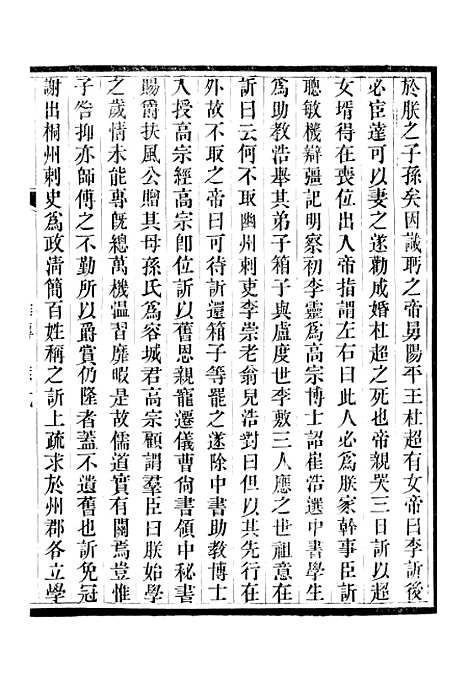 於朕之子孫矣因識聘之帝舅陽平王杜超有女帝曰李訢後
必臣達可以妻之遂勸成婚杜超之死也帝親哭三日訢以超
女壻得在喪位出入帝指謂左右曰此人必爲朕家幹事臣訢
聰敏機辯彊記明察初李靈爲高宗博士詔崔浩選中書學生
爲助教浩舉其弟子箱子與盧度世李敷三人應之世祖意在
訢曰云何不取幽州刺吏李崇老翁兒浩對曰但以其先行在
外故不取之帝曰可待訢還箱子等罷之遂除中書助教博士
入授高宗經高宗卽位訢以舊恩親寵遷儀曹尙書領中秘書
賜爵扶風公贈其母孫氏爲容城君高宗顧謂羣臣曰朕始學
之歲情未能專旣總萬機温習靡暇是故儒道實有闕焉豈惟
子咎抑亦師傅之不勤所以爵賞仍隆者蓋不遺舊也訢免冠
謝出桐州刺史爲政淸簡百姓稱之訢上疏求於州郡各立學